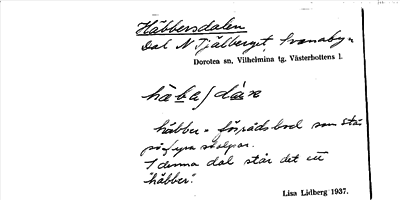 Häbbersdalen
Dal N Tjälberget, Svanaby.
Dorotea sn, Vilhelmina tg. Västerbottens l.
häbbe = förrådsbod som står
på fyra stolpar.
I denna dal står det ett
"häbber".
Lisa Lidberg 1937.